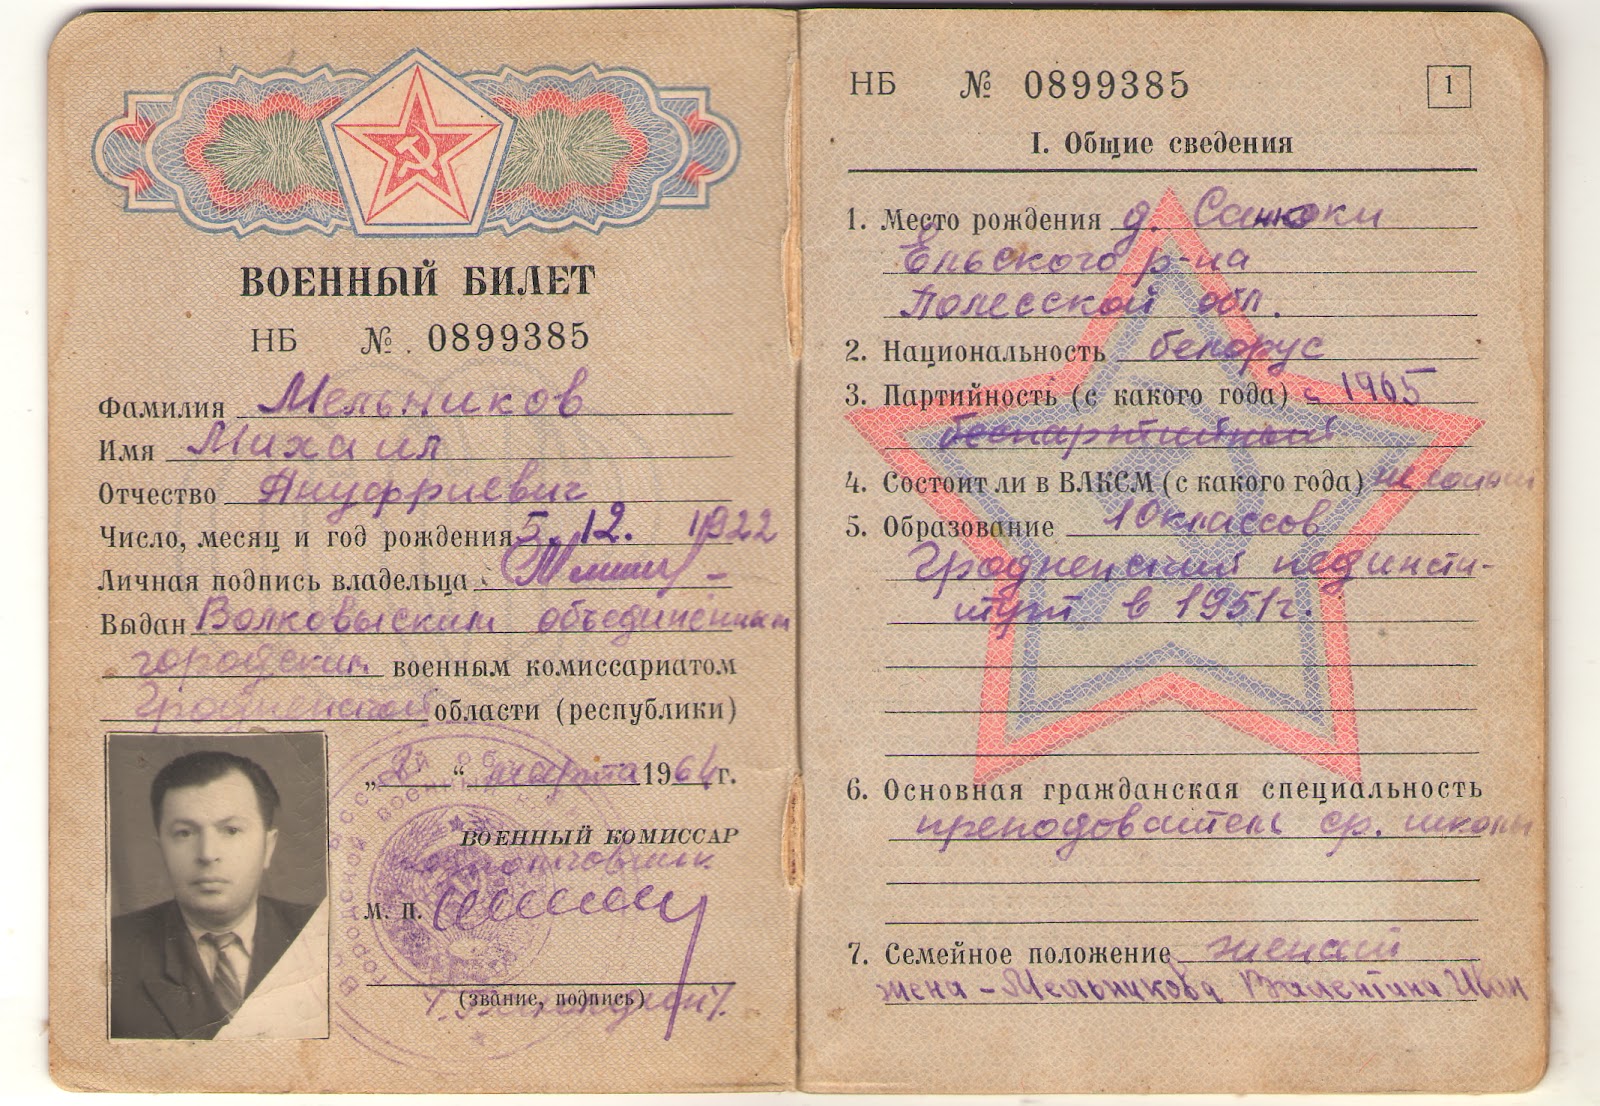 ВОЕННЫЙ БИЛЕТ
НБ № 0899385
Фамилия Мельников
Имя Михаил
Отчество Ануфриевич
Число, месяц и год рождения 5. 12. 1922
Личная подпись владельца
Выдан Волковыским объединённым
городским военным комиссариатом
Гродненской области (республики)
„2“ марта 1964 г.
ВОЕННЫЙ КОМИССАР
М. П.
(звание, подпись)
НБ № 0899385
1
I. Общие сведения
1. Место рождения д.
Ельского р-на
Полесской обл.
2. Национальность белорус
3. Партийность (с какого года) с 1965
беспартийный
4. Состоит ли в ВЛКСМ (с какого года) не состоит
5. Образование 10 классов
Гродненский пединсти-
тут в 1951г.
6. Основная гражданская специальность
преподаватель ср. школы
7. Семейное положение женат
жена - Мельникова Валентина Иван